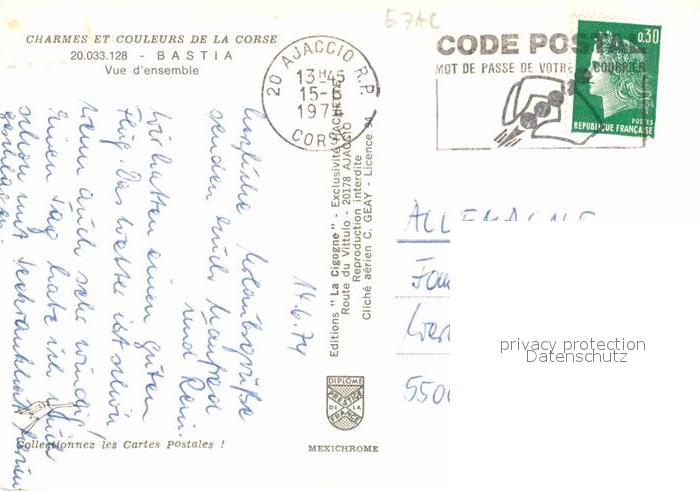 E7AC
CHARMES ET COULEURS DE LA CORSE
20.033.128 - BASTIA
Vue d'ensemble
20 AJACCIO R.P.
13 H 45
15-6
1974
CORSE
CODE POSTAL
MOT DE PASSE DE VOTRE COURRIER
0.30
POSTES
REPUBLIQUE FRANÇAISE
14.6.74
Herzliche Urlaubsgrüße
senden euch Manfred
und Reni.
Wir hatten einen guten
Flug. Das Wetter ist schön
wenn auch sehr windig!
Einen Tag habe ich mich
schon mit
Editions "La Cigogne" - Exclusivité HACHETTE
Route du Vittulo - 20178 AJACCIO
Reproduction interdite
Cliché aérien C. GEAY - Licence 94
ALLEMAGNE
Fam
550
privacy protection
Datenschutz
DIPLOME
PRESTIGE
DE LA
FRANCE
MEXICHROME
Collectionnez les Cartes Postales !